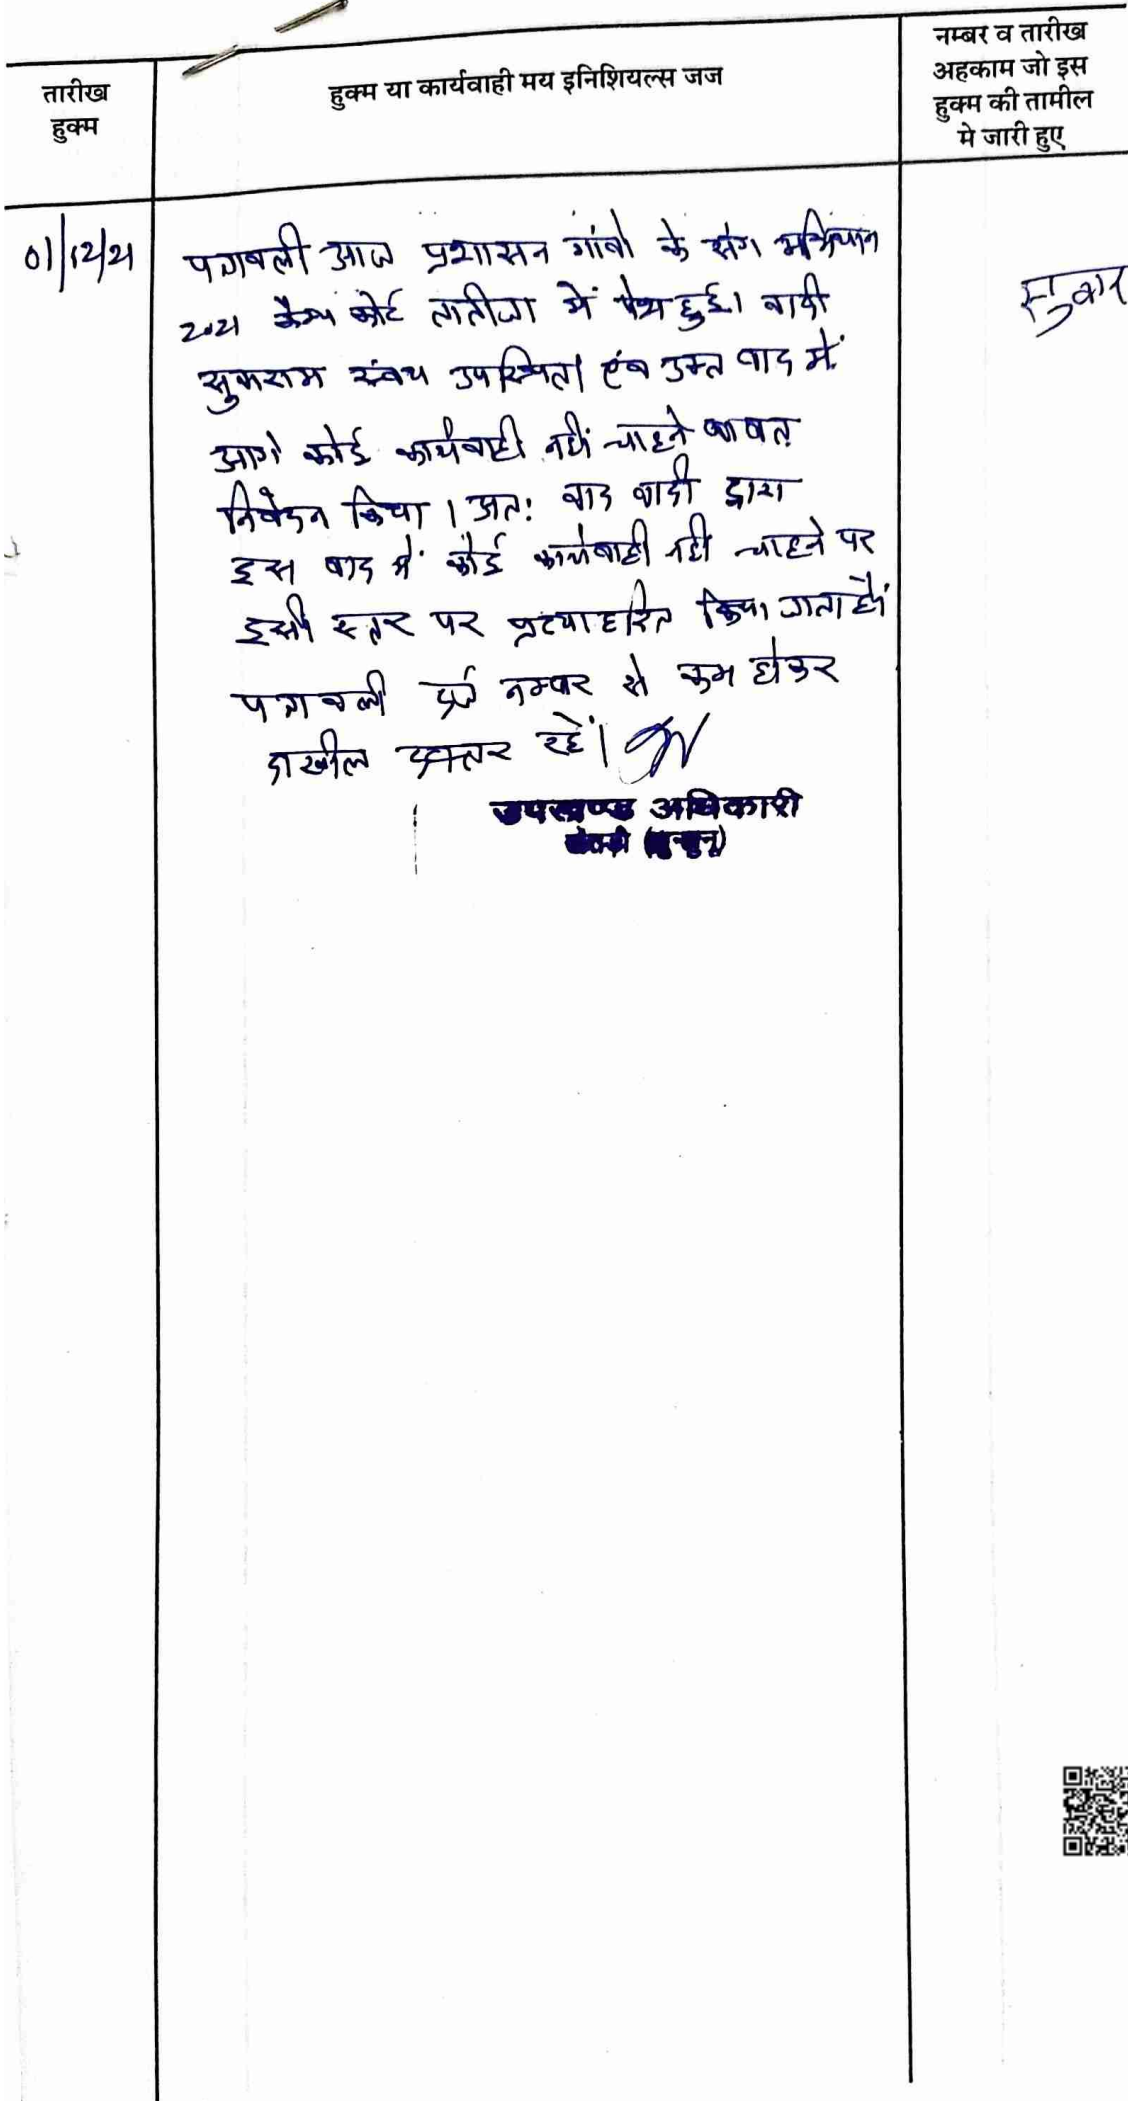 तारीख
हुक्म
हुक्म या कार्यवाही मय इनिशियल्स जज
नम्बर व तारीख
अहकाम जो इस
हुक्म की तामील
मे जारी हुए
01/12/21
पत्रावली आज प्रशासन गांवो के संग अभियान
2021 कैम्प कोर्ट तातीजा में पेश हुई। वादी
सुकराम स्वंय उपस्थित। एंव उक्त वाद में
आगे कोई कार्यवाही नहीं चाहने बाबत
निवेदन किया। अत: वाद वादी द्वारा
इस वाद में कोई कार्यवाही नही चाहने पर
इसी स्तर पर प्रत्याहरित किया जाता है।
पत्रावली दर्ज नम्बर से कम होकर
दाखील दफ्तर रहें।
उपखण्ड अधिकारी